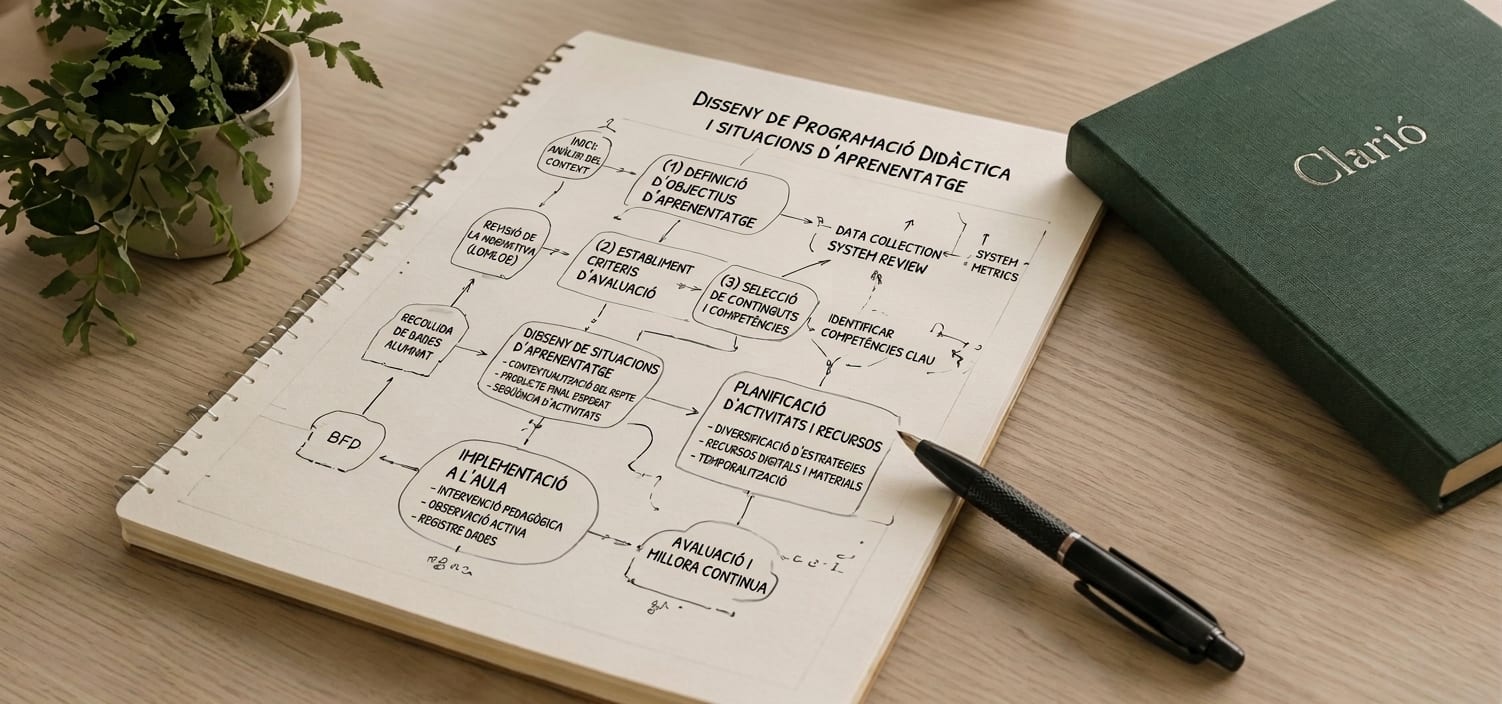 DISSENY DE PROGRAMACIÓ DIDÀCTICA
I SITUACIONS D'APRENENTATGE
INICI:
ANÀLISI DEL
CONTEXT
(1) DEFINICIÓ
D'OBJECTIUS
D'APRENENTATGE
DATA COLLECTION
SYSTEM REVIEW
SYSTEM
METRICS
REVISIÓ DE
LA NORMATIVA
(LOMLOE)
(2) ESTABLIMENT
CRITERIS
D'AVALUACIÓ
(3) SELECCIÓ
DE CONTINGUTS
I COMPETÈNCIES
IDENTIFICAR
COMPETÈNCIES CLAU
RECOLLIDA
DE DADES
ALUMNAT
DISSENY DE SITUACIONS
D'APRENENTATGE
- CONTEXTUALITZACIÓ DEL REPTE
- PRODUCTE FINAL ESPERAT
- SEQÜÈNCIA D'ACTIVITATS
PLANIFICACIÓ
D'ACTIVITATS I RECURSOS
- DIVERSIFICACIÓ D'ESTRATEGIES
- RECURSOS DIGITALS I MATERIALS
- TEMPORALITZACIÓ
BFD
IMPLEMENTACIÓ
A L'AULA
- INTERVENCIÓ PEDAGÒGICA
- OBSERVACIÓ ACTIVA
- REGISTRE DADES
AVALUACIÓ I
MILLORA CONTINUA
Clarió